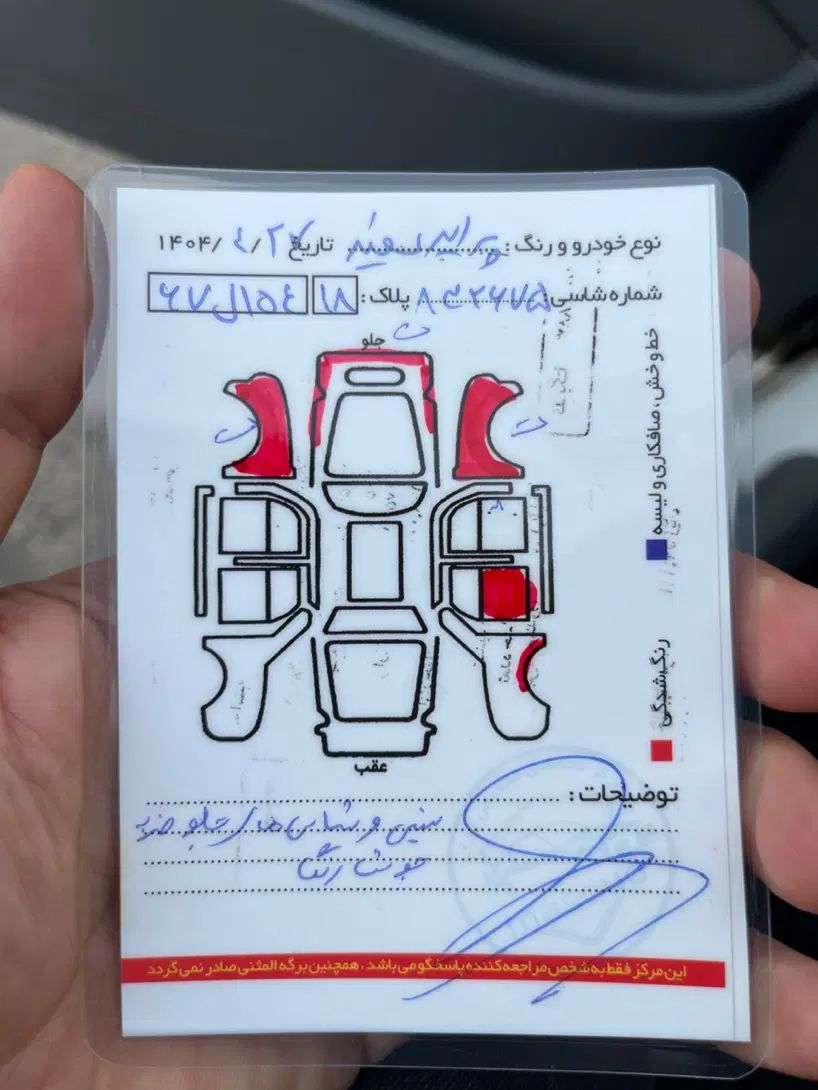 نوع خودرو و رنگ: پراید سفید تاریخ ۱۴۰۴/۴/۲۷
شماره شاسی: پلاک: ۱۸ ۱۵۴ل۶۷
جلو ت
ت ت
خط و خش، صافکاری و لیسه
رنگ شدگی
عقب
توضیحات:
سینی و شاسی های جلو ضربه
جوش رنگ
این مرکز فقط به شخص مراجعه کننده پاسخگو می باشد، همچنین برگه المثنی صادر نمی گردد